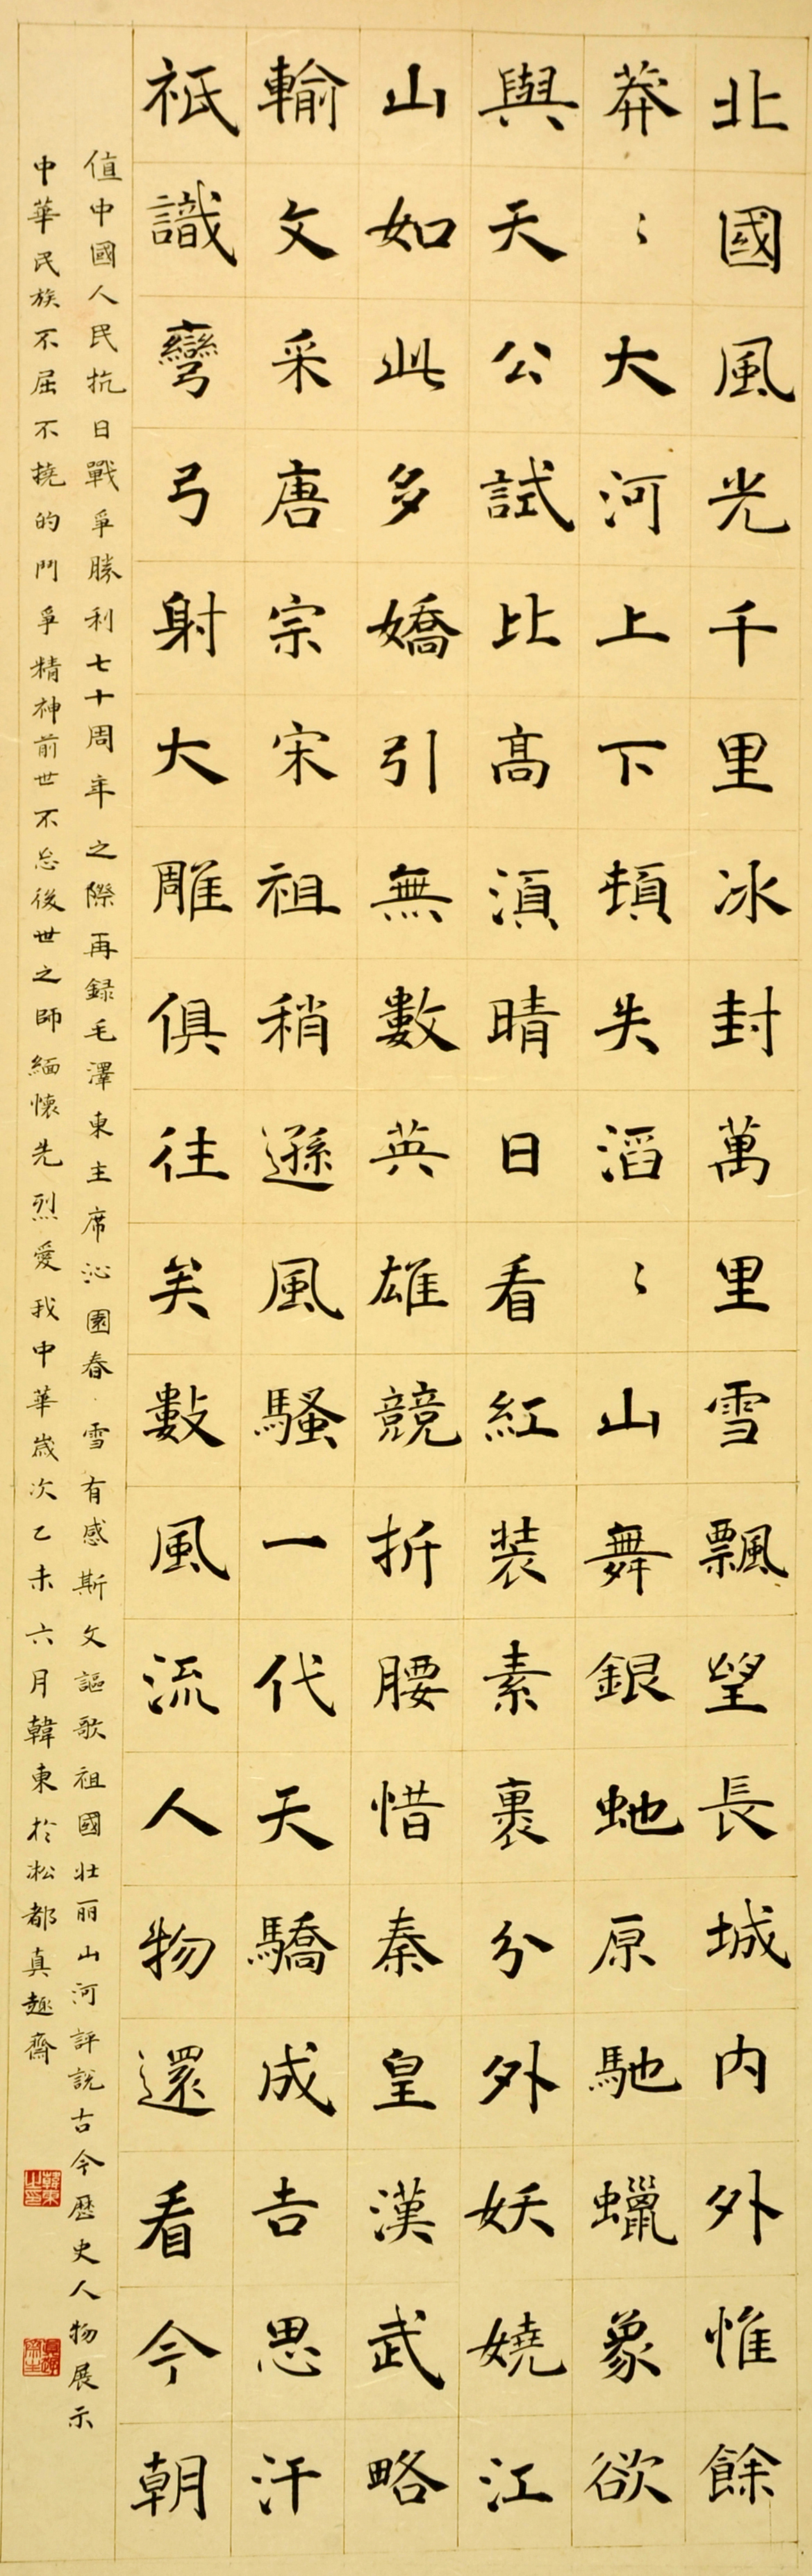 北國風光千里冰封萬里雪飄望長城内外惟餘
莽〻大河上下頓失滔〻山舞銀虵原馳蠟象欲
與天公試比高須晴日看紅装素裹分外妖嬈江
山如此多嬌引無數英雄競折腰惜秦皇漢武略
輸文采唐宗宋祖稍遜風騷一代天驕成吉思汗
祇識彎弓射大雕俱往矣數風流人物還看今朝
值中國人民抗日戰爭勝利七十周年之際再録毛澤東主席沁園春·雪有感斯文謳歌祖國壯丽山河評説古今歷史人物展示
中華民族不屈不撓的鬥爭精神前世不忘後世之師緬懷先烈愛我中華歲次乙未六月韓東於凇都真趣齋
韓東之印